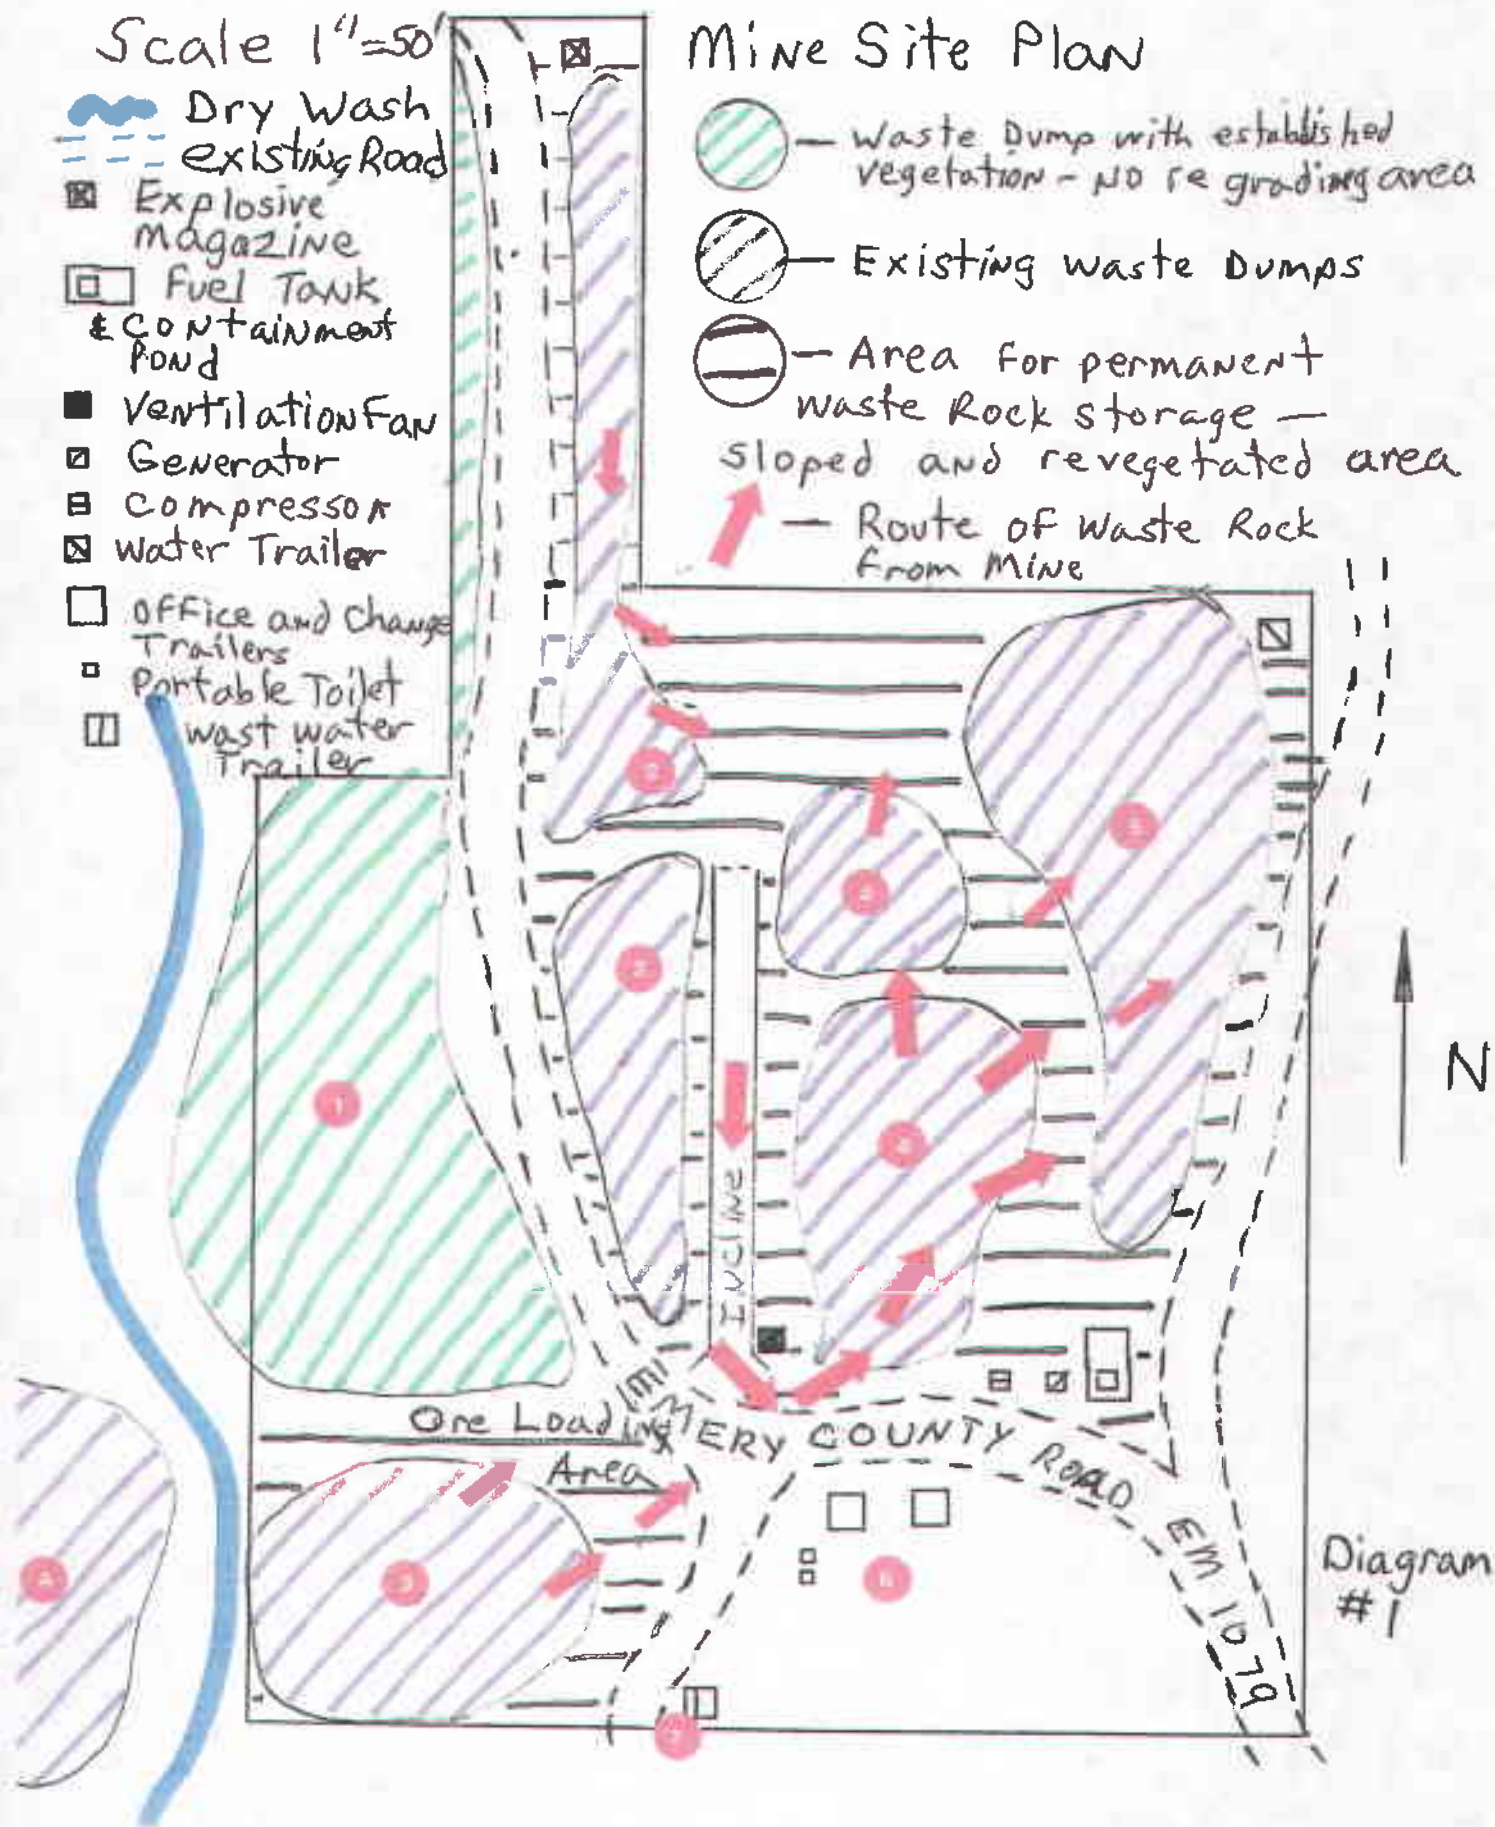 Scale 1"=50'
Dry Wash
existing Road
Explosive
magazine
Fuel Tank
& Containment
Pond
Ventilation Fan
Generator
Compressor
Water Trailer
Office and Change
Trailers
Portable Toilet
Wast water
Trailer
Mine Site Plan
Waste Dump with established
vegetation - No regrading area
Existing Waste Dumps
Area for permanent
Waste Rock storage -
sloped and revegetated area
Route of Waste Rock
from Mine
Incline
N
1
2
Ore Loading
Area
EMERY COUNTY ROAD EM 1079
Diagram
#1